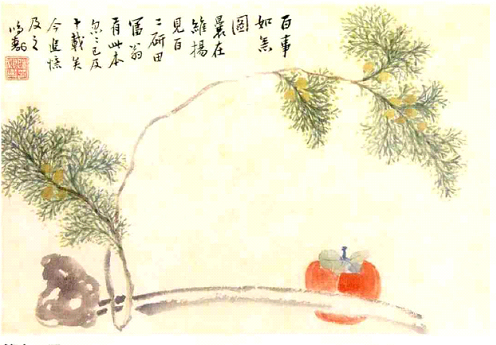 百事
如意
圖
曩在
維揚
見百
二研田
富翁
有此本
忽忽已及
十載矣
今進憶
及之